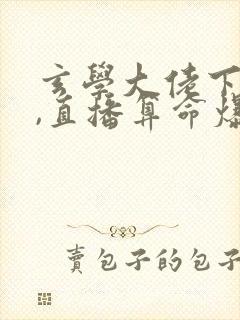 玄學大佬下
,直播算命爆
賣包子的包子